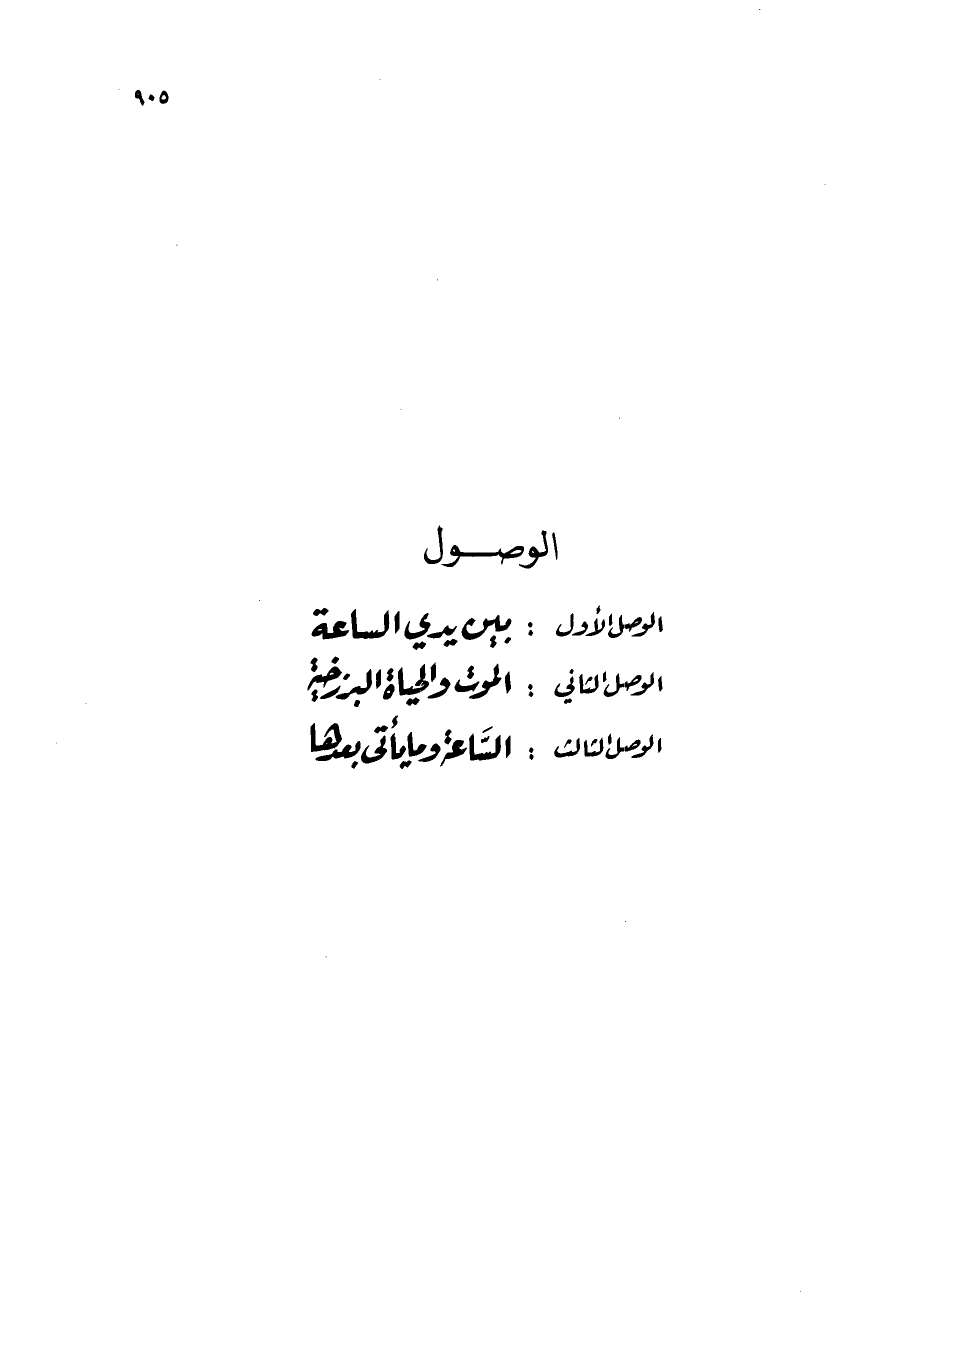 ٩٠٥
الوصول
الوصل الأول : بين يدي الساعة
الوصل الثاني : الموت والحياة البرزخية
الوصل الثالث : السَّاعة وما يأتي بعدها